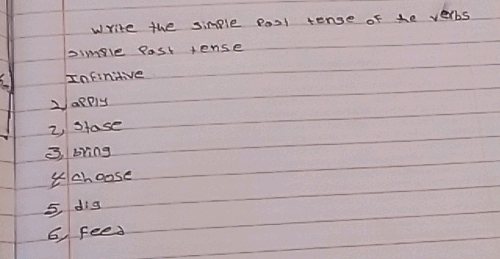 Write the simple Past tense of the verbs
simple Past tense
Infinitive
1, apply
2, stase
3, bring
4, choose
5, dig
6, feed